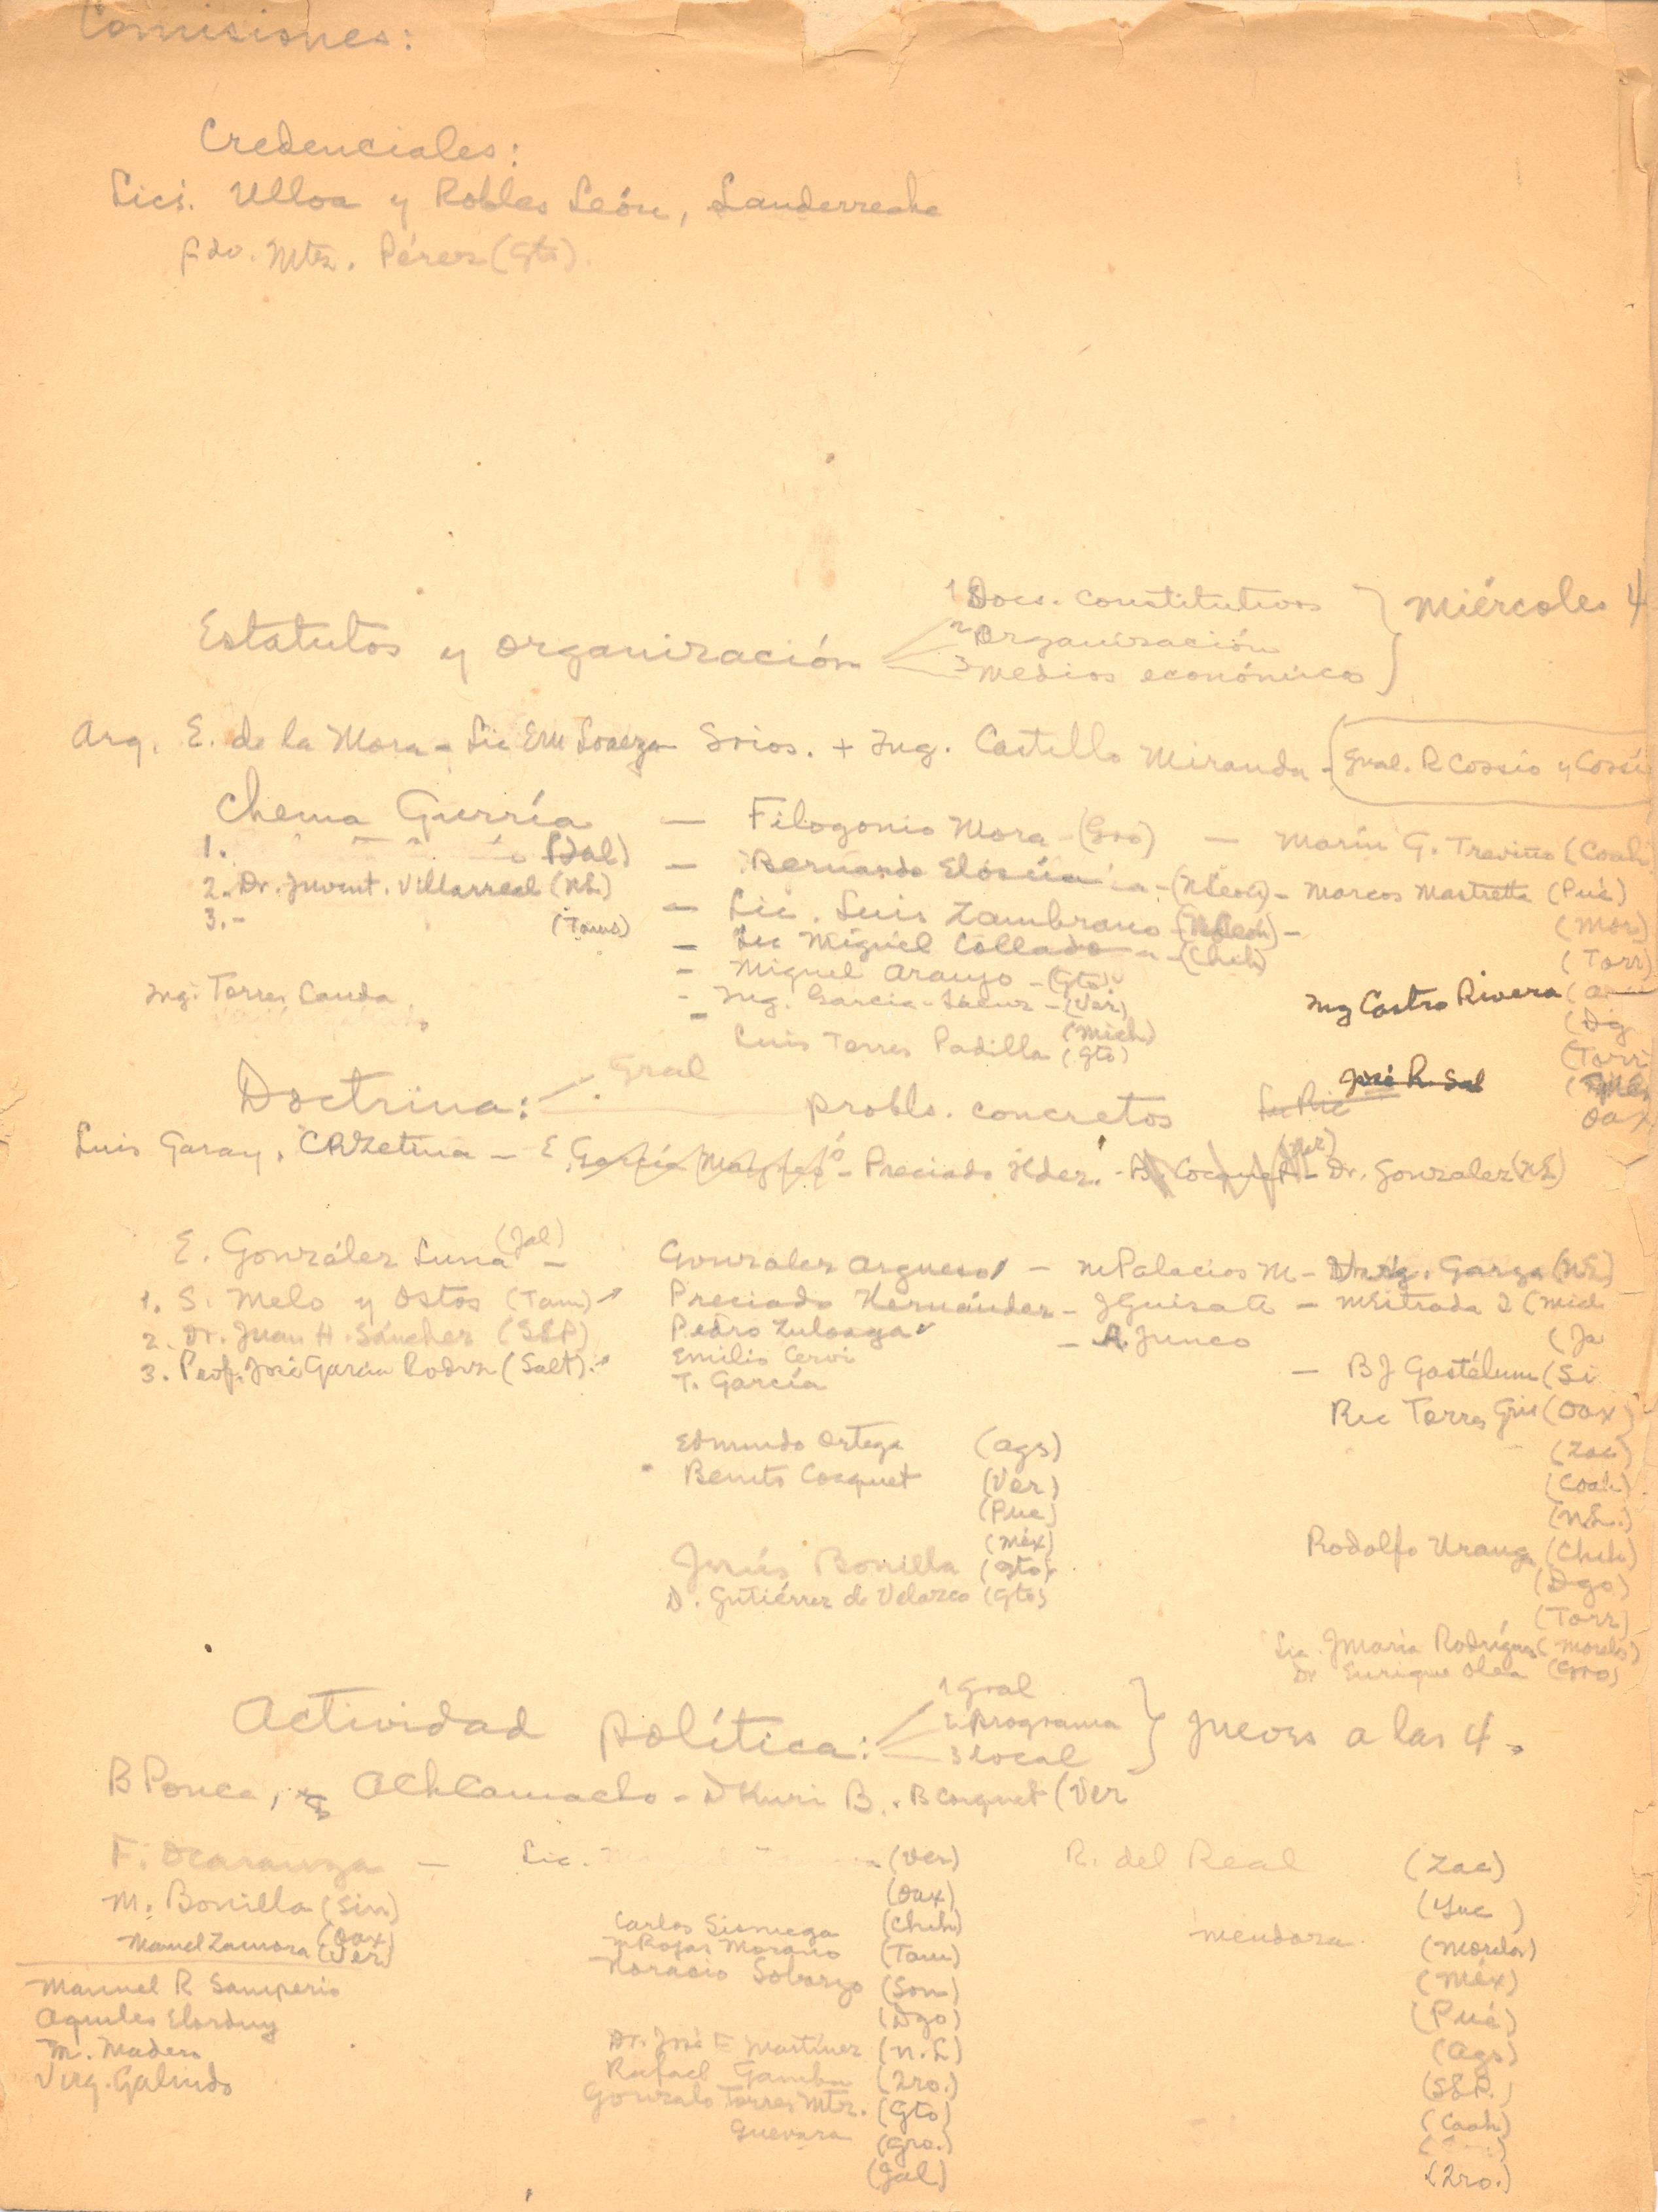 Comisiones:
Credenciales:
Lics. Ulloa y Robles León, Landerreche
Fdo. Mtz. Pérez (Gto).
1 Docs. constitutivos
Estatutos y organización 2 Organización } Miércoles 4
3 Medios económicos
Arq. E. de la Mora - Lic Srios. + Ing. Castillo Miranda - (Gral. R Cossio y Cossí
Chema Gurría — Filogonio Mora - (Gro) — Marín G. Treviño (Coah
1. (Jal) — Bernardo Elosúa - (NLeon) - Marcos Mastretta (Pué)
2. Dr. Juvent. Villarreal (NL) — Lic. Luis Zambrano - (NLeon) - (Mor)
3. - (Tams) — Lic Miguel Collado - (Chih) (Torr)
- Miguel Araujo - (Gto)
Ing. Torres Canda - Ing. Garcia - (Ver) Ing Castro Rivera
- (Mich) (Dg
Luis Torres Padilla (Gto) (Torr
Gral
Doctrina: probls. concretos José R. Sal
Oax
Luis Garay, CRZetina - E. García - Preciado Hder. - B. Cocquet (Ver) - Dr. Gonzalez (NL)
E. González Luna (Jal) - Gonzalez Argueso - MPalacios M - Virg. Garza (NL)
1. S. Melo y Ostos (Tam) Preciado Hernández - JGuisa A - MEstrada I (Mich
2. Dr. Juan H. Sánchez (SLP) Pedro Zuloaga - A. Junco (Ja
3. Prof. José García Rodrz (Salt). Emilio Cervi - B J Gastélum (Si
T. García Ric Torres (Oax)
Edmundo Ortega (Ags) (Zac)
Benito Coquet (Ver) (Coah)
(Pue) (N.L.)
(Méx) Rodolfo Uranga (Chih)
Jesús Bonilla (Gto) (Dgo)
D. Gutiérrez de Velazco (Gto) (Torr)
Lic. JMaría Rodríguez (Morelos)
Dr Enrique Olea (Gro)
1 Gral
Actividad política: 2 Programa } Jueves a las 4.
3 Local
B Ponce, AChCamacho - DKuri B. - B Coquet (Ver
F. Ocaranza — Lic. (Ver) R. del Real (Zac)
M. Bonilla (Sin) (Oax) (Yuc)
(Oax) Carlos Sisniega (Chih) Mendoza (Morelos)
Manuel Zamora (Ver) MRojas Morano (Tam) (Méx)
Manuel R Samperio Horacio Sobarzo (Son) (Pué)
Aquiles Elorduy (Dgo) (Ags)
M. Madero Dr. José F Martínez (N.L) (SLP.)
Virg. Galindo Rafael Gamba (Qro.) (Coah)
Gonzalo Torres Mtz. (Gto)
Guevara (Gro.)
(Jal) (Qro.)